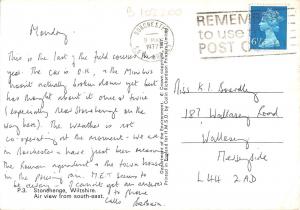 B 102000
DORCHESTER
9 MAY
1977
REMEMBER
to use the
POST CODE
6½P
Monday
This is the last of the field courses this
year. The car is O.K., & the Minibus
hasn't actually broken down yet but
has thought about it once or twice
(especially near Stonehenge on the
way here). The weather is not
co-operating at the moment - we are
in Dorchester & have just been measuring
the Roman aqueduct & the town houses
in the pouring rain. MET seems to
be away. I cannot get an answer
to phone
calls Barbara
Miss K.I. Boardley
187 Wallasey Road
Wallasey
Merseyside
L44 2AD
P.3. Stonehenge, Wiltshire.
Air view from south-east.